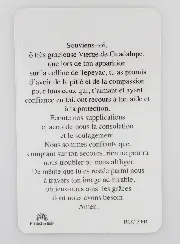 Souviens-toi,
ô très gracieuse Vierge de Guadalupe,
que lors de ton apparition
sur la colline de Tepeyac, tu as promis
d'avoir de la pitié et de la compassion
pour tous ceux qui, t'aimant et ayant
confiance en toi, ont recours à ton aide et
à ta protection.
Ecoute nos supplications
et accorde-nous la consolation
et le soulagement.
Nous sommes confiants que,
comptant sur ton secours, rien ne pourra
nous troubler ou nous affliger.
De même que tu es restée parmi nous
à travers ton image admirable,
obtiens-nous ainsi les grâces
dont nous avons besoin.
Amen.